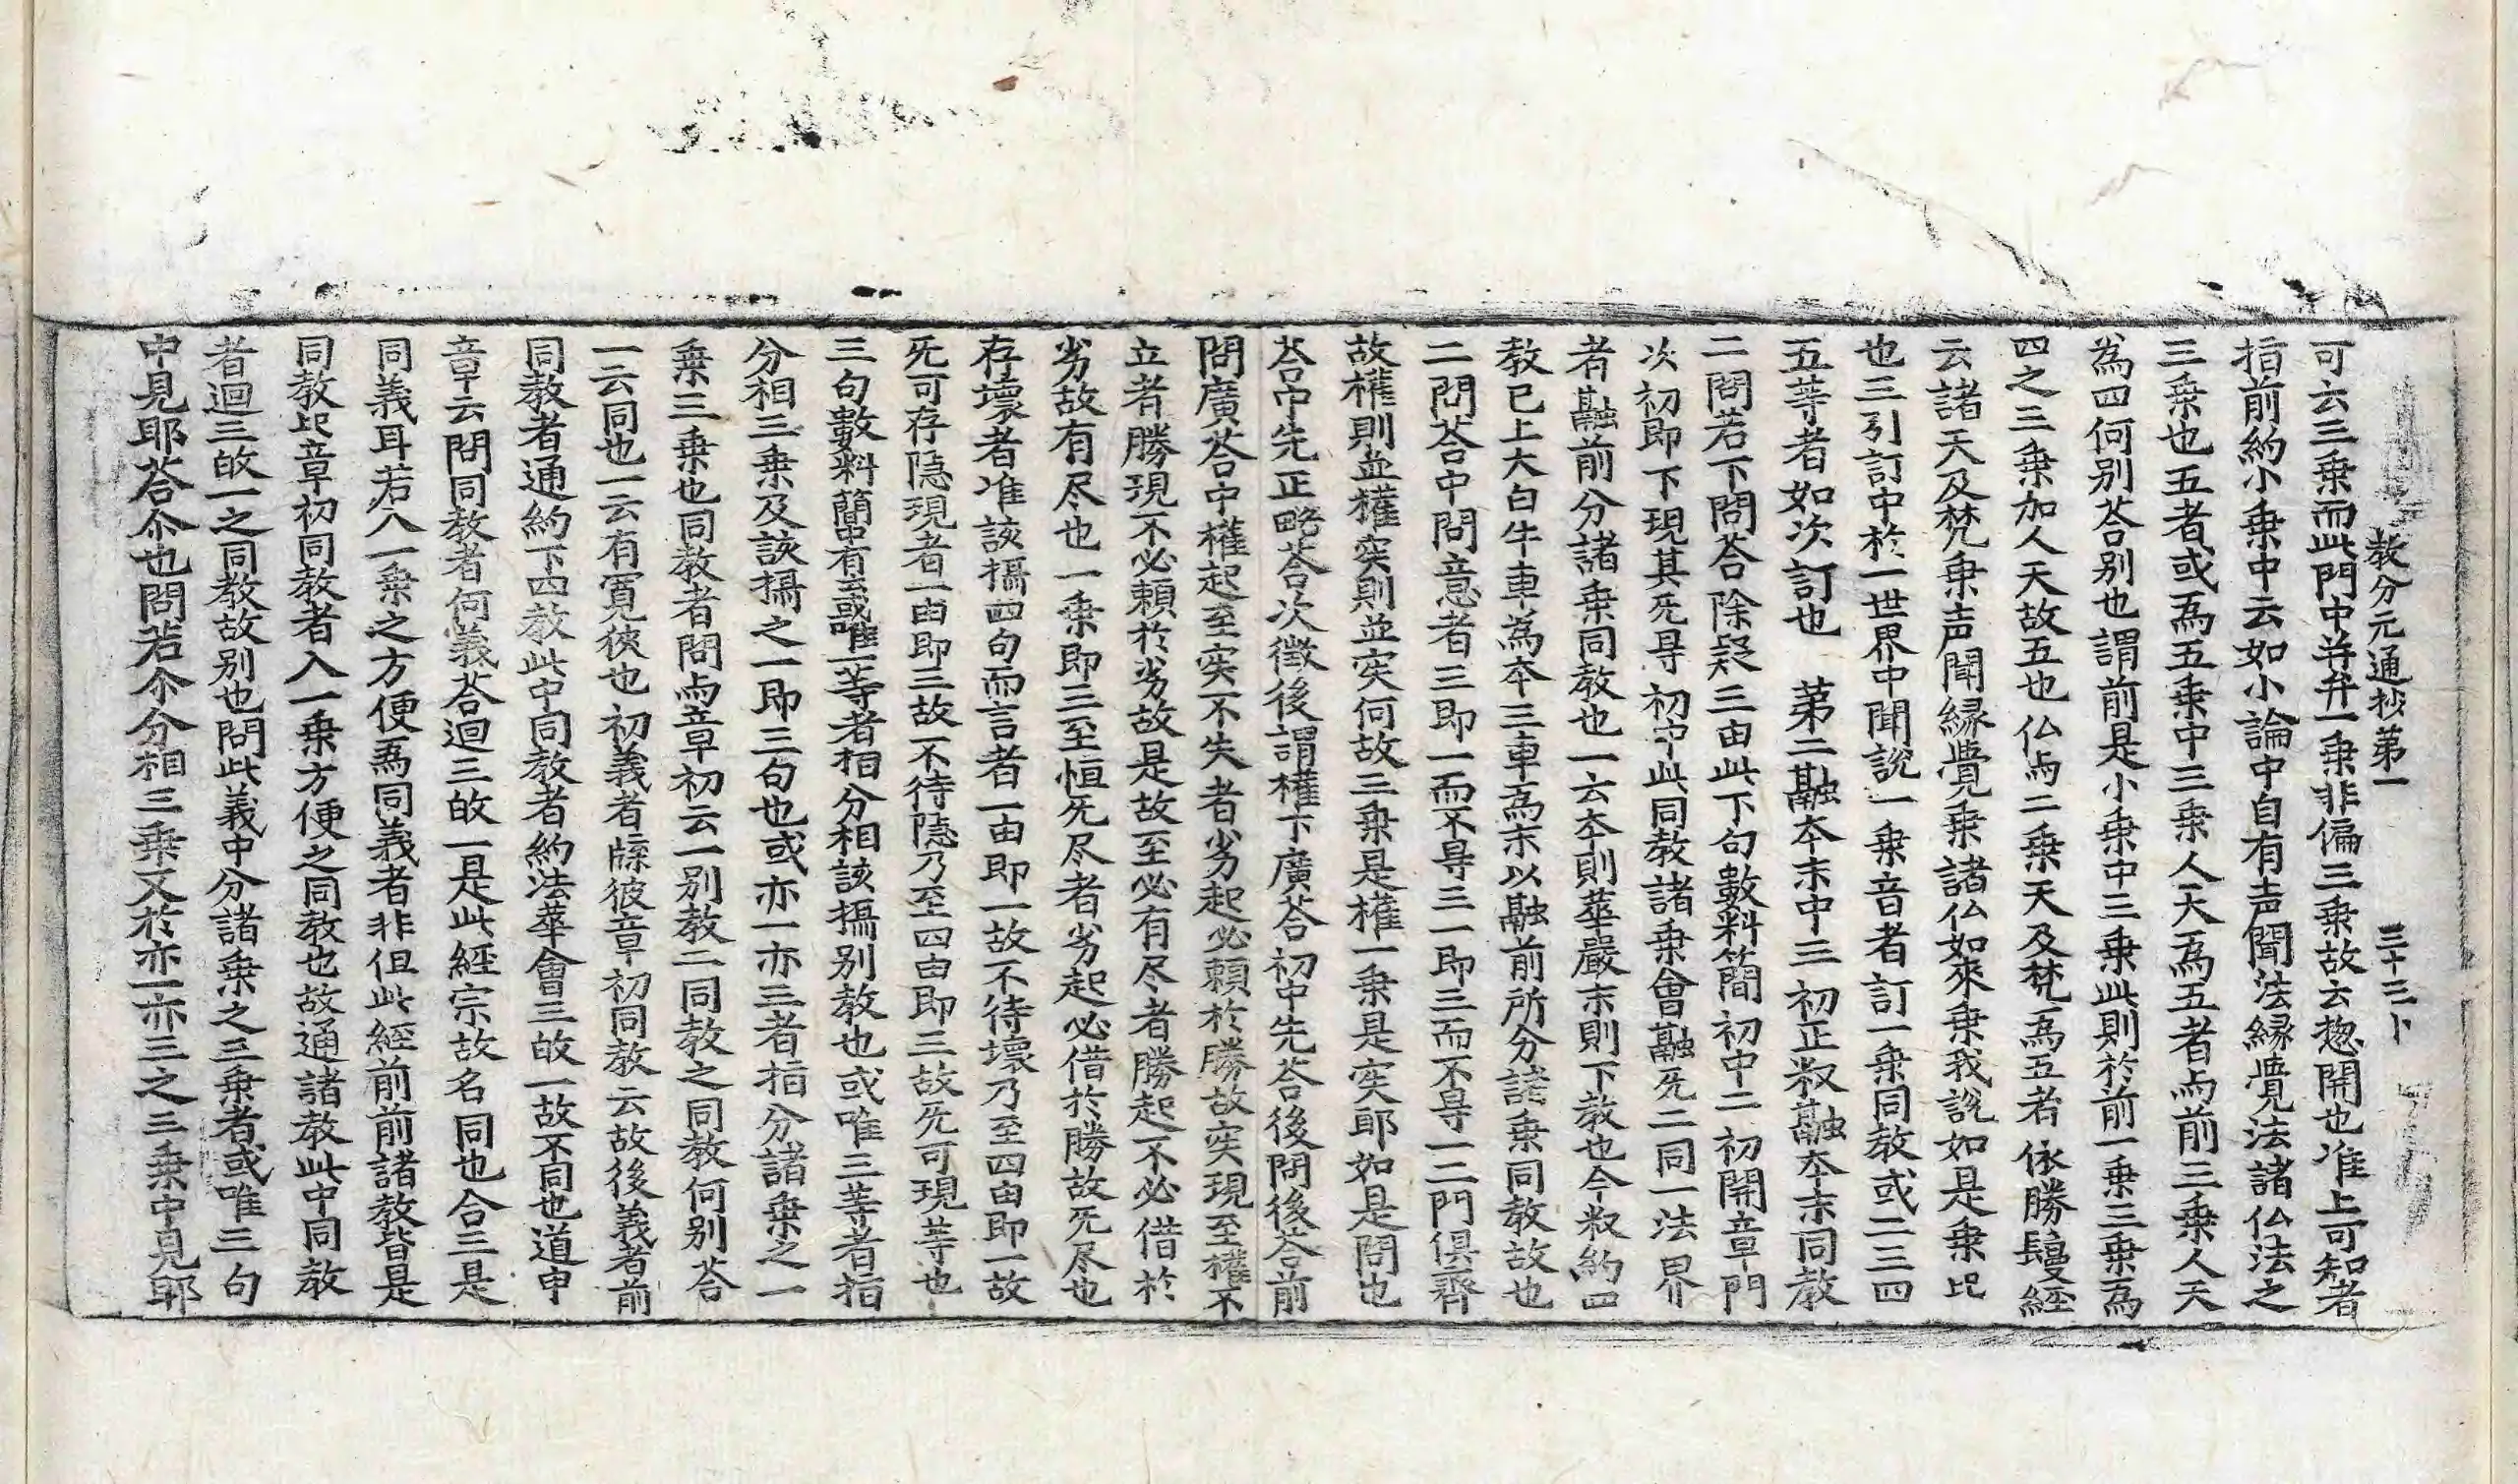 教分元通抄第一 三十三卜
可云三乗而此門中并弁一乗非偏三乗故云惣開也准上可知者
指前約小乗中云如小論中自有声聞法縁覺法諸仏法之
三乗也五者或為五乗中三乗人天為五者与前三乗人天
為四何别荅别也謂前是小乗中三乗此則於前一乗三乗為
四之三乗加人天故五也仏与二乗天及梵為五者依勝鬘経
云諸天及梵乗声聞縁覺乗諸仏如來乗我說如是乗比
也三引訂中於一世界中聞說一乗音者訂一乗同教或二三四
五䓁者如次訂也 苐二融夲末中三初正叙融夲末同教
二問若下問荅除疑三由此下句數料簡初中二初開章門
次初即下現其旡㝵初中此同教諸乗會融旡二同一法界
者融前分諸乗同教也一云夲則華嚴末則下教也今叙約四
教已上大白牛車為夲三車為末以融前所分諸乗同教故也
二問荅中問意者三即一而不㝵三一即三而不㝵一二門俱齊
故權則並權实則並实何故三乗是權一乗是实耶如是問也
荅中先正略荅次徵後謂權下廣荅初中先荅後問後荅前
問廣荅中權起至实不失者劣起必頼於勝故实現至權不
立者勝現不必頼於劣故是故至必有尽者勝起不必借於
劣故有尽也一乗即三至恒旡尽者劣起必借於勝故旡尽也
存壞者准該攝四句而言者一由即一故不待壞乃至四由即一故
旡可存隐現者一由即三故不待隐乃至四由即三故旡可現䓁也
三句數料簡中有至或唯一䓁者相分相該攝别教也或唯三䓁者指
分相三乗及該攝之一即三句也或亦一亦三者指分諸乗之一
乗三乗也同教者問与章初云一别教二同教之同教何别荅
一云同也一云有寛狹也初義者牒彼章初同教云故後義者前
同教者通約下四教此中同教者約法華會三故一故不同也道申
章云問同教者何義荅迴三故一是此經宗故名同也合三是
同義耳若入一乗之方便為同義者非但此經前前諸教皆是
同教此章初同教者入一乗方便之同教也故通諸教此中同教
者迴三故一之同教故别也問此義中分諸乗之三乗者或唯三句
中見耶荅尒也問若尒分相三乗又於亦一亦三之三乗中見耶